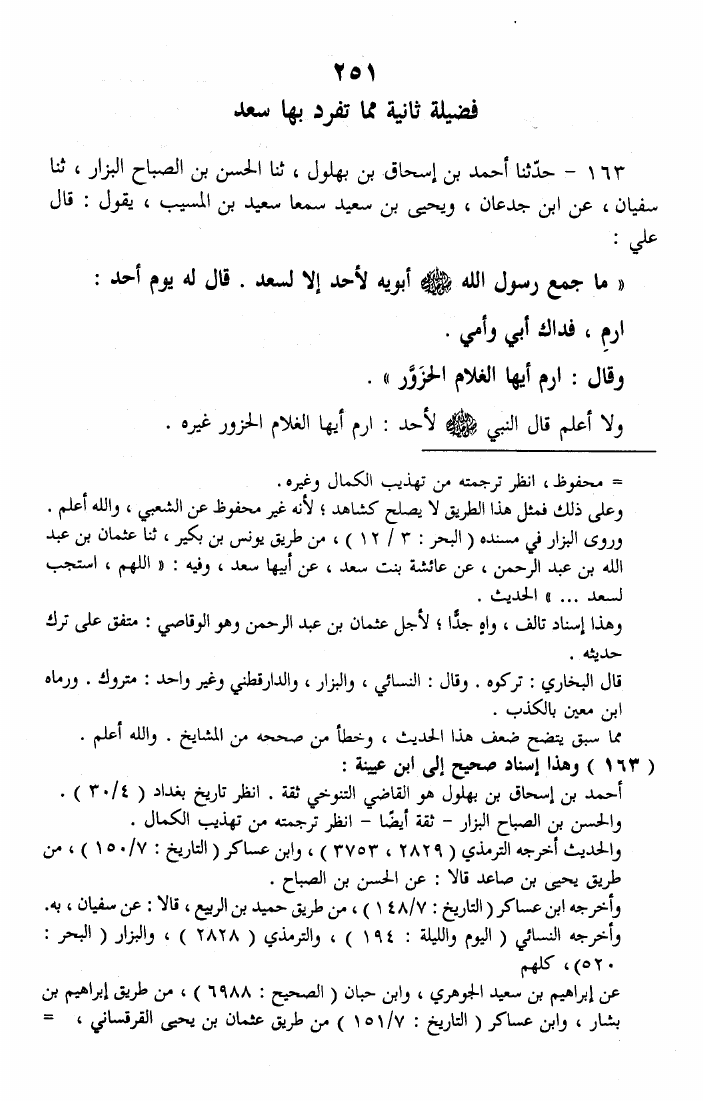 ٢٥١
فضيلة ثانية مما تفرد بها سعد
١٦٣ - حدّثنا أحمد بن إسحاق بن بهلول ، ثنا الحسن بن الصباح البزار ، ثنا
سفيان ، عن ابن جدعان ، ويحيى بن سعيد سمعا سعيد بن المسيب ، يقول : قال
علي :
« ما جمع رسول الله ﷺ أبويه لأحد إلا لسعد . قال له يوم أحد :
ارمِ ، فداك أبي وأمي .
وقال : ارم أيها الغلام الحَزَوَّر » .
ولا أعلم قال النبي ﷺ لأحد : ارم أيها الغلام الحزور غيره .
= محفوظ ، انظر ترجمته من تهذيب الكمال وغيره .
وعلى ذلك فمثل هذا الطريق لا يصلح كشاهد ؛ لأنه غير محفوظ عن الشعبي ، والله أعلم .
وروى البزار في مسنده ( البحر : ٣ / ١٢ ) ، من طريق يونس بن بكير ، ثنا عثمان بن عبد
الله بن عبد الرحمن ، عن عائشة بنت سعد ، عن أبيها سعد ، وفيه : « اللهم ، استجب
لسعد ... » الحديث .
وهذا إسناد تالف ، واهٍ جدًّا ؛ لأجل عثمان بن عبد الرحمن وهو الوقاصي : متفق على ترك
حديثه .
قال البخاري : تركوه . وقال : النسائي ، والبزار ، والدارقطني وغير واحد : متروك . ورماه
ابن معين بالكذب .
مما سبق يتضح ضعف هذا الحديث ، وخطأ من صححه من المشايخ . والله أعلم .
( ١٦٣ ) وهذا إسناد صحيح إلى ابن عيينة :
أحمد بن إسحاق بن بهلول هو القاضي التنوخي ثقة . انظر تاريخ بغداد ( ٣٠/٤ ) .
والحسن بن الصباح البزار - ثقة أيضًا - انظر ترجمته من تهذيب الكمال .
والحديث أخرجه الترمذي ( ٢٨٢٩ ، ٣٧٥٣ ) ، وابن عساكر ( التاريخ : ١٥٠/٧ ) ، من
طريق يحيى بن صاعد قالا : عن الحسن بن الصباح .
وأخرجه ابن عساكر ( التاريخ : ١٤٨/٧ ) ، من طريق حميد بن الربيع ، قالا : عن سفيان ، به.
وأخرجه النسائي ( اليوم والليلة : ١٩٤ ) ، والترمذي ( ٢٨٢٨ ) ، والبزار ( البحر :
٥٢٠) ، كلهم
عن إبراهيم بن سعيد الجوهري ، وابن حبان ( الصحيح : ٦٩٨٨ ) ، من طريق إبراهيم بن
بشار ، وابن عساكر ( التاريخ : ١٥١/٧ ) من طريق عثمان بن يحيى القرقساني ، =